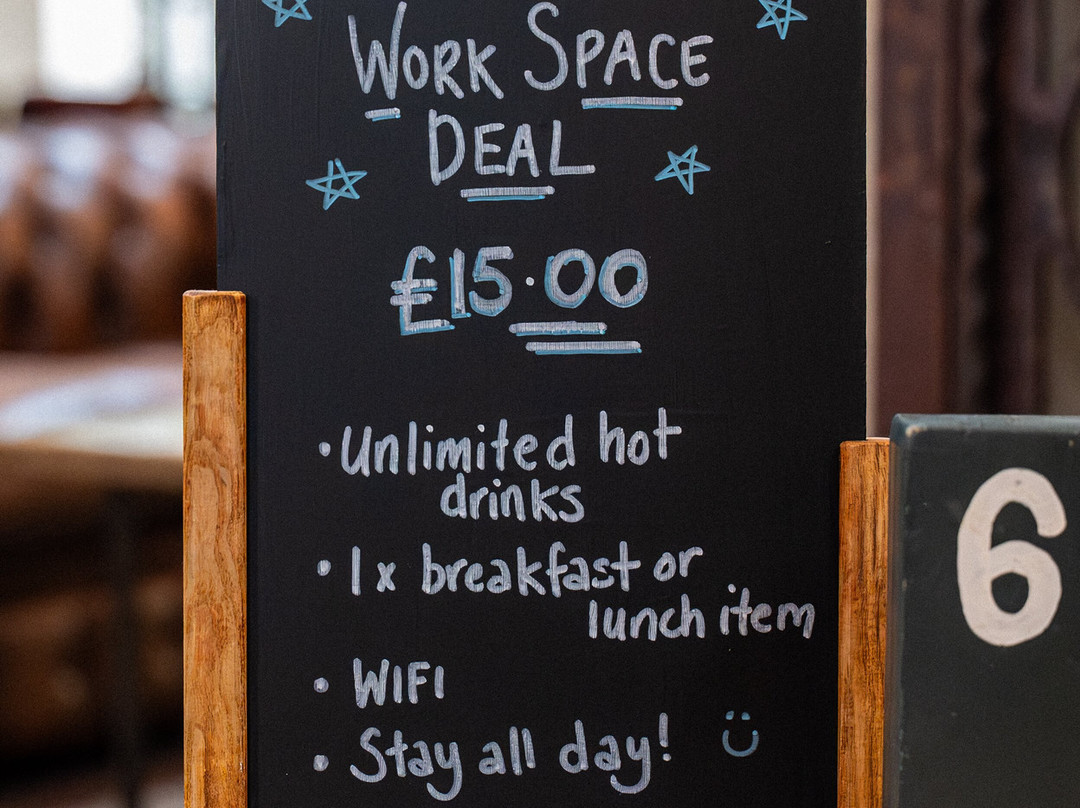 WORK SPACE
DEAL
£15.00
• Unlimited hot
drinks
• 1 x breakfast or
lunch item
• WIFI
• Stay all day!
6